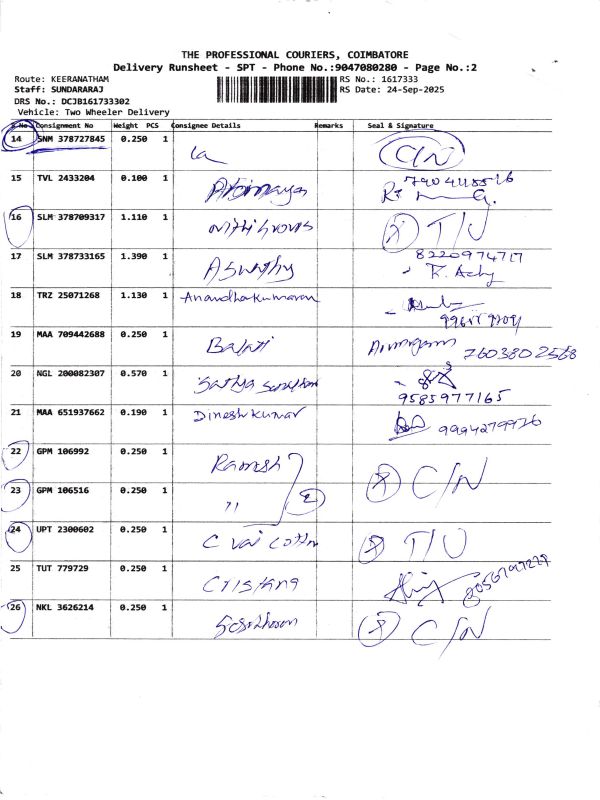 THE PROFESSIONAL COURIERS, COIMBATORE
Delivery Runsheet - SPT - Phone No.:9047080280 - Page No.:2
Route: KEERANATHAM RS No.: 1617333
Staff: SUNDARARAJ RS Date: 24-Sep-2025
DRS No.: DCJB161733302
Vehicle: Two Wheeler Delivery
S.No Consignment No Weight PCS Consignee Details Remarks Seal & Signature
14 SNM 378727845 0.250 1 C/N
15 TVL 2433204 0.100 1
16 SLM 378709317 1.110 1 T/U
17 SLM 378733165 1.390 1 Aswathy 8220974717
18 TRZ 25071268 1.130 1 Anandhakumaran
19 MAA 709442688 0.250 1 Balaji 7603802568
20 NGL 200082307 0.570 1 Sathya 9585977165
21 MAA 651937662 0.190 1 Dineshkumar 9994279926
22 GPM 106992 0.250 1 Ramesh
23 GPM 106516 0.250 1 " 2 C/N
24 UPT 2300602 0.250 1 T/U
25 TUT 779729 0.250 1
26 NKL 3626214 0.250 1 C/N